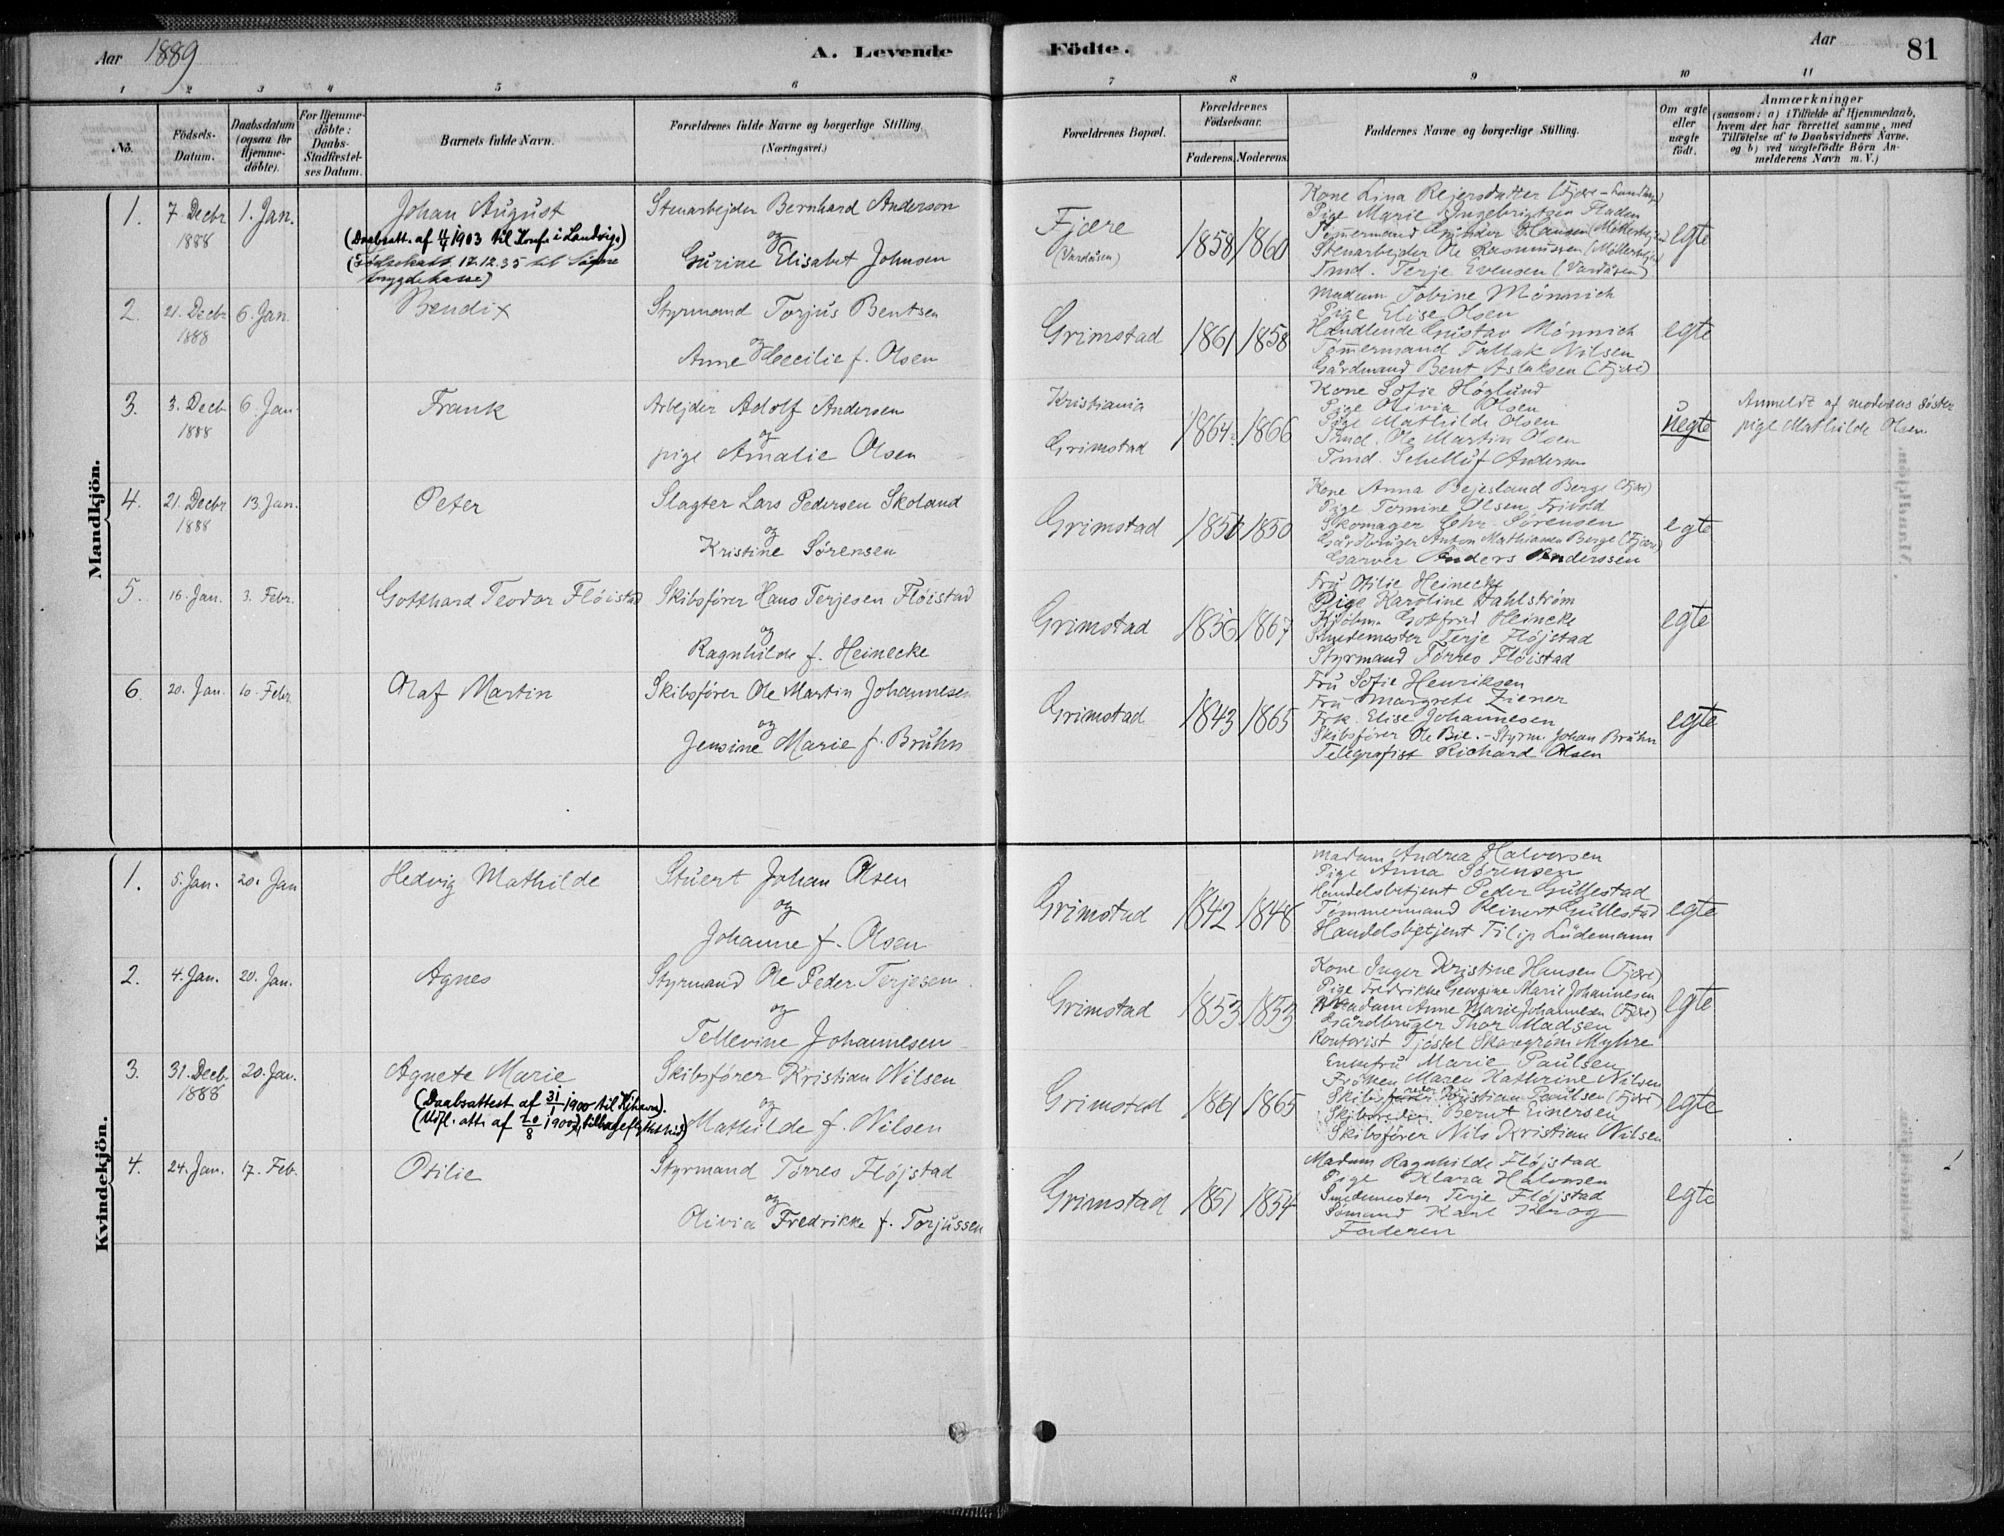 Aar 1889
A. Levende Födte.
Aar
81
1 2 3 4 5 6 7 8 9 10 11
No.
Födsels-Datum.
Daabsdatum (ogsaa for Hjemme-döbte).
For Hjemme-döbte: Daabs-Stadfæstel-ses Datum.
Barnets fulde Navn.
Forældrenes fulde Navne og borgerlige Stilling. (Næringsvei.)
Forældrenes Bopæl.
Forældrenes Födselsaar.
Faderens. Moderens.
Faddernes Navne og borgerlige Stilling.
Om ægte eller uægte født.
Anmærkninger (saasom: a) i Tilfælde af Hjemmedaab, hvem der har forrettet samme, med Tilföielse af to Daabsvidners Navne. og b) ved uægtefödte Börn An-melderens Navn m. V.)
Mandkjön.
1. 7. Decbr 1888 1. Jan.
Johan August
(Daabsatt. af 1903 til Konf. i Landvig)
(Fødselsatt. 17.12.35 til Søgne trygdekasse)
Stenarbejder Bernhard Anderson
og
Gurine Elisabet Johnsen
Fjære
(Vardåsen)
1858 1860
Kone Lina Rejersdatter
Pige Marie Ingebrigtsen Fladen
Tømmermand Gunder Hansen
Stenarbejder Ole Rasmussen
Tmd. Terje Evensen (Vardåsen)
egte
2. 21. Decbr 1888 6. Jan.
Bendix
Styrmand Torjus Bentsen
og
Anne Cecilie f. Olsen
Grimstad
1861 1858
Madam Tobine Mönnich
Pige Elise Olsen
Handlende Gustav Mönnich
Tømmermand Tallak Nilsen
Gårdmand Bent Aslaksen (Fjære)
egte
3. 3. Decb 1888 6. Jan.
Frank
Arbejder Adolf Andersen
og
pige Amalie Olsen
Kristiania
Grimstad
1864 1866
Kone Sofie Höglund
Pige Olivia Olsen
Pige Mathilde Olsen
Tmd. Ole Martin Olsen
Tmd. Andersen
uegte
Anmeldt af moderens søster
pige Mathilde Olsen
4. 21. Decbr 1888 13. Jan.
Peter
Slagter Lars Pedersen Skoland
og
Kristine Sörensen
Grimstad
1851 1850
Kone Anna Bejesland Berge (Fjære)
Pige Tomine Olsen Frivold
Skomager Chr Sørensen
Gårdbruger Anton Mathiassen Berge (Fjære)
Garver Anders Anderssen
egte
5. 16. Jan. 3. Febr.
Gotthard Teodor Flöistad
Skibsfører Hans Terjesen Flöistad
og
Ragnhilde f. Heinecke
Grimstad
1856 1867
Fru Otilie Heinecke
Pige Karoline Dahlström
Kjöbm. Gotfried Heincke
Smedemester Terje Fløjstad
Styrmand Tørres Flöistad
egte
6. 20. Jan. 10. Febr.
Olaf Martin
Skibsfører Ole Martin Johannesen
og
Jensine Marie f. Bruhn
Grimstad
1843 1865
Fru Sofie Henriksen
Fru Margrete Ziener
Frk. Elise Johannesen
Skibsfører Ole Bie. - Styrm. Johan Bruhn
Telegrafist Richard Olsen
egte
Kvindekjön.
1. 5. Jan. 20. Jan
Hedvig Mathilde
Stuert Johan Olsen
og
Johanne f. Olsen
Grimstad
1842 1848
Madam Andrea Halvorsen
Pige Anna Sørensen
Handelsbetjent Peder Gullestad
Tømmermand Reinert Gullestad
Handelsbetjent Filip Lüdemann
egte
2. 4. Jan. 20. Jan.
Agnes
Styrmand Ole Peder Terjesen
og
Tellevine Johannesen
Grimstad
1853 1853
Kone Inger Kristine Hansen (Fjære)
Pige Fredrikke Georgine Marie Johannesen
Madam Anne Marie Johannesen (Fjære)
Gårdbruger Thor Madsen
Kontorist Tjöstel Skaregröm Myhre
egte
3. 31. Decb. 1888 20. Jan.
Agnete Marie
(Daabsattest af 31/1 1900 til Kjhavn).
(Udfl. att. af 20/8 1900, tilbageflyttet hid)
Skibsfører Kristian Nilsen
og
Mathilde f. Nilsen
Grimstad
1861 1865
Enkefru Marie Paulsen
Frøken Maren Kathrine Nilsen
Skibsreder Kristian Paulsen (Fjære)
Skibsreder Bernt Einersen
Skibsfører Nils Kristian Nilsen
egte
4. 24. Jan. 17. Feb.
Otilie
Styrmand Tørres Fløjstad
og
Olivia Fredrikke f. Torjussen
Grimstad
1851 1854
Madam Ragnhilde Fløjstad
Pige Klara Halvorsen
Smedemester Terje Fløjstad
Sømand Karl Krog
Faderen
egte